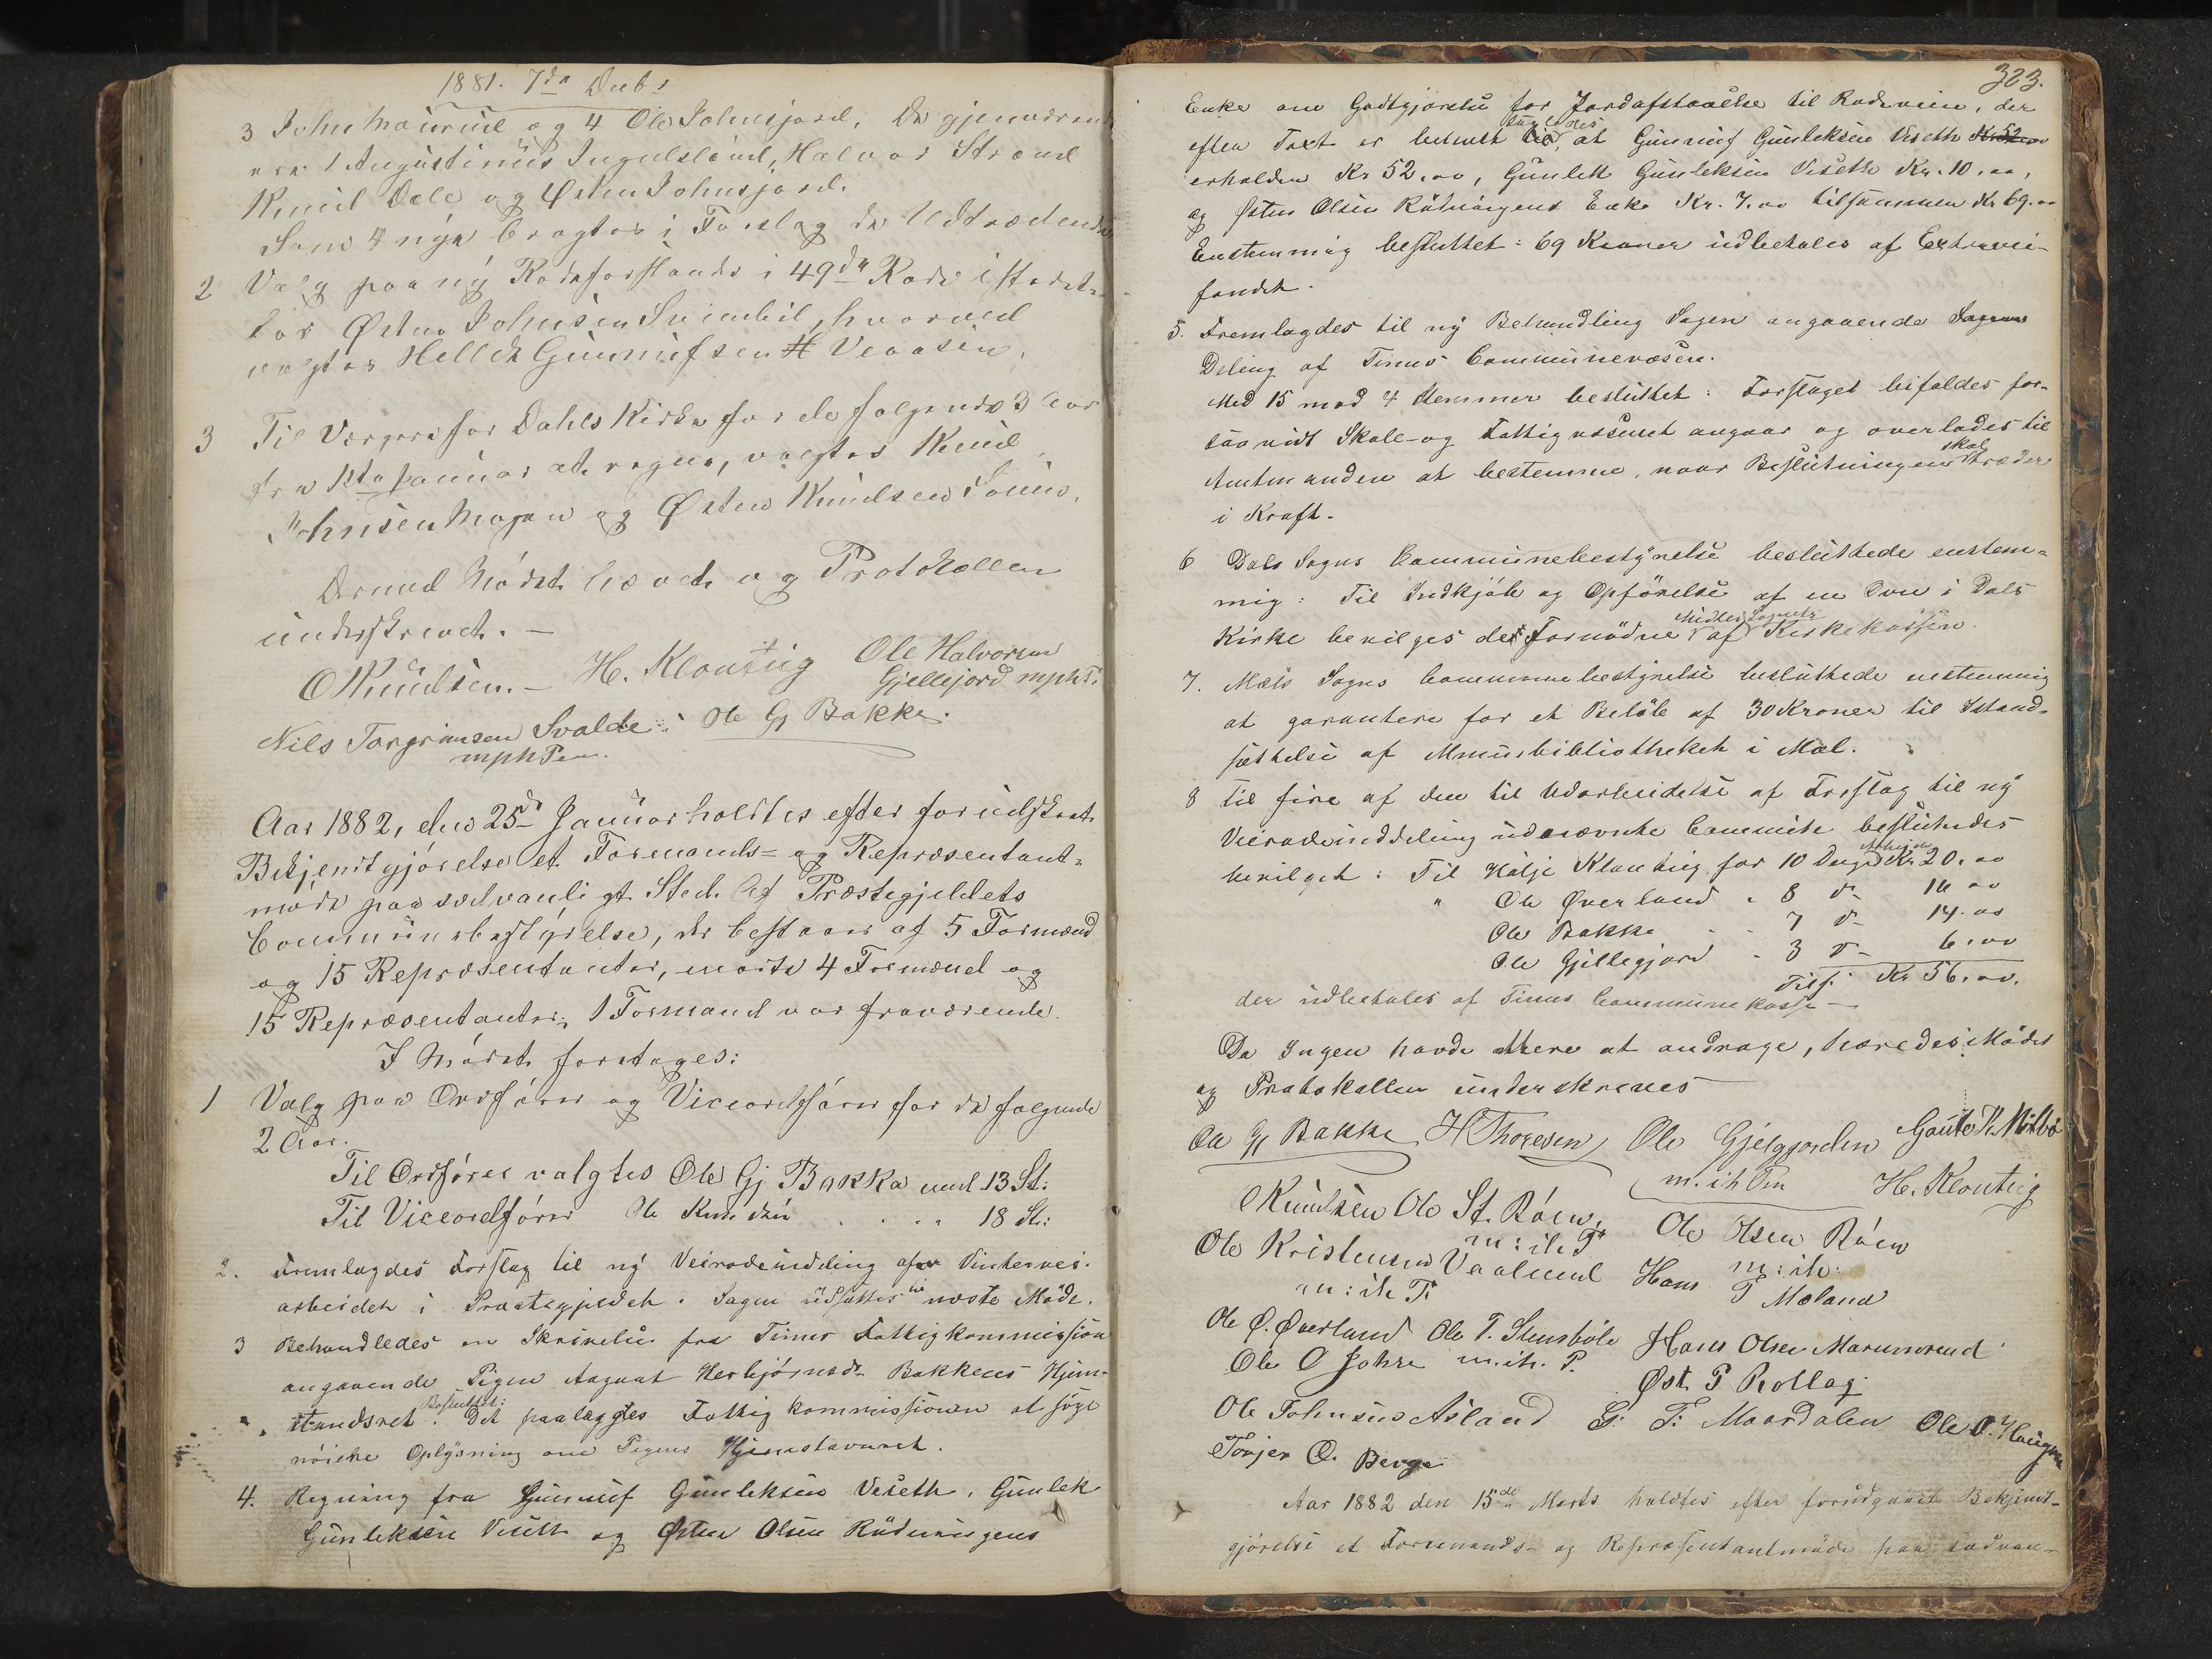 1881. 7de Decb:
3 John Maurud og 4 Ole Johnsjord. De gjenværende
ere 1 Augustinus Ingulsland, Halvor Strand
Knud Dale og Østen Johnsjord.
Som 4 nye bragtes i Forslag de Udtrædende
2 Valg paa ny Rodeforstander i 49de Rode istedet-
for Østen Johnsen Svinebil, hvorved
valgtes Hellek Gunnufsen Veaasen.
3 Til Værgere for Dahls Kirke for de følgende 3 Aar
fra 1ste Januar at regne, valgtes Knud
Johnsen Mogen og Østen Knudsen
Dermed Mødet hævet og Protokollen
underskrevet. —
OKnudsen. — H. Klontig Ole Halvorsen
Gjellejord mphP:
Nils Torgrimsen Svalde: Ole Gj Bakke.
mphPen.
Aar 1882, den 25de Januar holdtes efter forudskeet
Bekjendtgjørelse et Formands- og Repræsentant-
møde paa sædvanligt Sted. Af Præstegjeldets
Communebestyrelse, der bestaar af 5 Formænd
og 15 Repræsentanter, mødte 4 Formænd og
15 Repræsentanter; 1 Formand var fraværende.
I Mødet foretages:
1 Valg paa Ordfører og Viceordfører for de følgende
2 Aar.
Til Ordfører valgtes Ole Gj Bakka med 13 St:
Til Viceordfører Ole Knudsen . . . . 18 St:
2. Fremlagdes Forslag til ny Veirodeinddeling af Vintervei-
arbeidet i Præstegjeldet. Sagen udsattes til næste Møde.
3 Behandledes en Skrivelse fra Tinns Fattigkommission
angaaende Pigen Aagaat Herbjørnsdr. Bakkens Hjem-
standsret. Besluttet: Det paalægges Fattigkommissionen at søge
nøiere Oplysning om Pigens Hjemstavnsret.
4. Regning fra Gunnuf Gunleksen Veseth, Gunlek
Gunleksen Veseth og Østen Olsen Rudningens
323.
Enke om Godtgjørelse for Jordafstaaelse til Rodeveien, der
efter Taxt er bestemt saaledes, at Gunnuf Gunleksen Veseth
erholder Kr 52.00, Gunlek Gunleksen Veseth Kr. 10.00,
og Østen Olsen Rudningens Enke Kr. 7.00 tilsammen Kr 69.00
Enstemmig besluttet: 69 Kroner udbetales af Extravei-
fondet.
5. Fremlagdes til ny Behandling Sagen angaaende
Deling af Tinns Communevæsen.
Med 15 mod 4 Stemmer besluttet: Forslaget bifaldes for-
saavidt Skole- og Fattigvæsenet angaar og overlades til
Amtmanden at bestemme, naar Beslutningen skal træde
i Kraft.
6 Dals Sogns Communebestyrelse besluttede enstem-
mig: Til Indkjøb og Opførelse af en Ovn i Dals
Kirke bevilges det Fornødne Midler af Sognets Kirkekasse.
7. Mæls Sogns Communebestyrelse besluttede enstemmig
at garantere for et Beløb af 30 Kroner til Istand-
sættelse af Almuebibliotheket i Mæl.
8 Til fire af den til Udarbeidelse af Forslag til ny
Veirodeinddeling udnævnte Committe besluttedes
bevilget: Til Hølje Klontig for 10 Dages Arbeide Kr. 20.00
" Ole Øverland " 8 do 16 00
Ole Bakke - - 7 do 14.00
Ole Gjellegjord - 3 do 6.00
Tils. Kr 56.00.
der udbetales af Tinns Communekasse —
Da Ingen havde Mere at andrage, hævedes Mødet
og Protokollen underskreves
Ole Gj Bakke HThoresen Ole Gjelgjorden Gaute K. Milbø
m. ih Pen H. Klontig
OKnudsen Ole St. Røen, Ole Olsen Røen
m: ih P m: ih:
Ole Kristensen Vaalund Hans T Mæland
m: ih P:
Ole Ø. Øverland Ole T. Stensbøle Hans Olsen Marumsrud
Ole O Johre m. ih. P. Øst. P Rollag
Ole Johnsen Asland G: T: Maardalen Ole O. Haugen
Torjer O. Berge
Aar 1882 den 15de Marts holdtes efter forudgaaet Bekjendt-
gjørelse et Formands- og Repræsentantmøde paa sædvan-